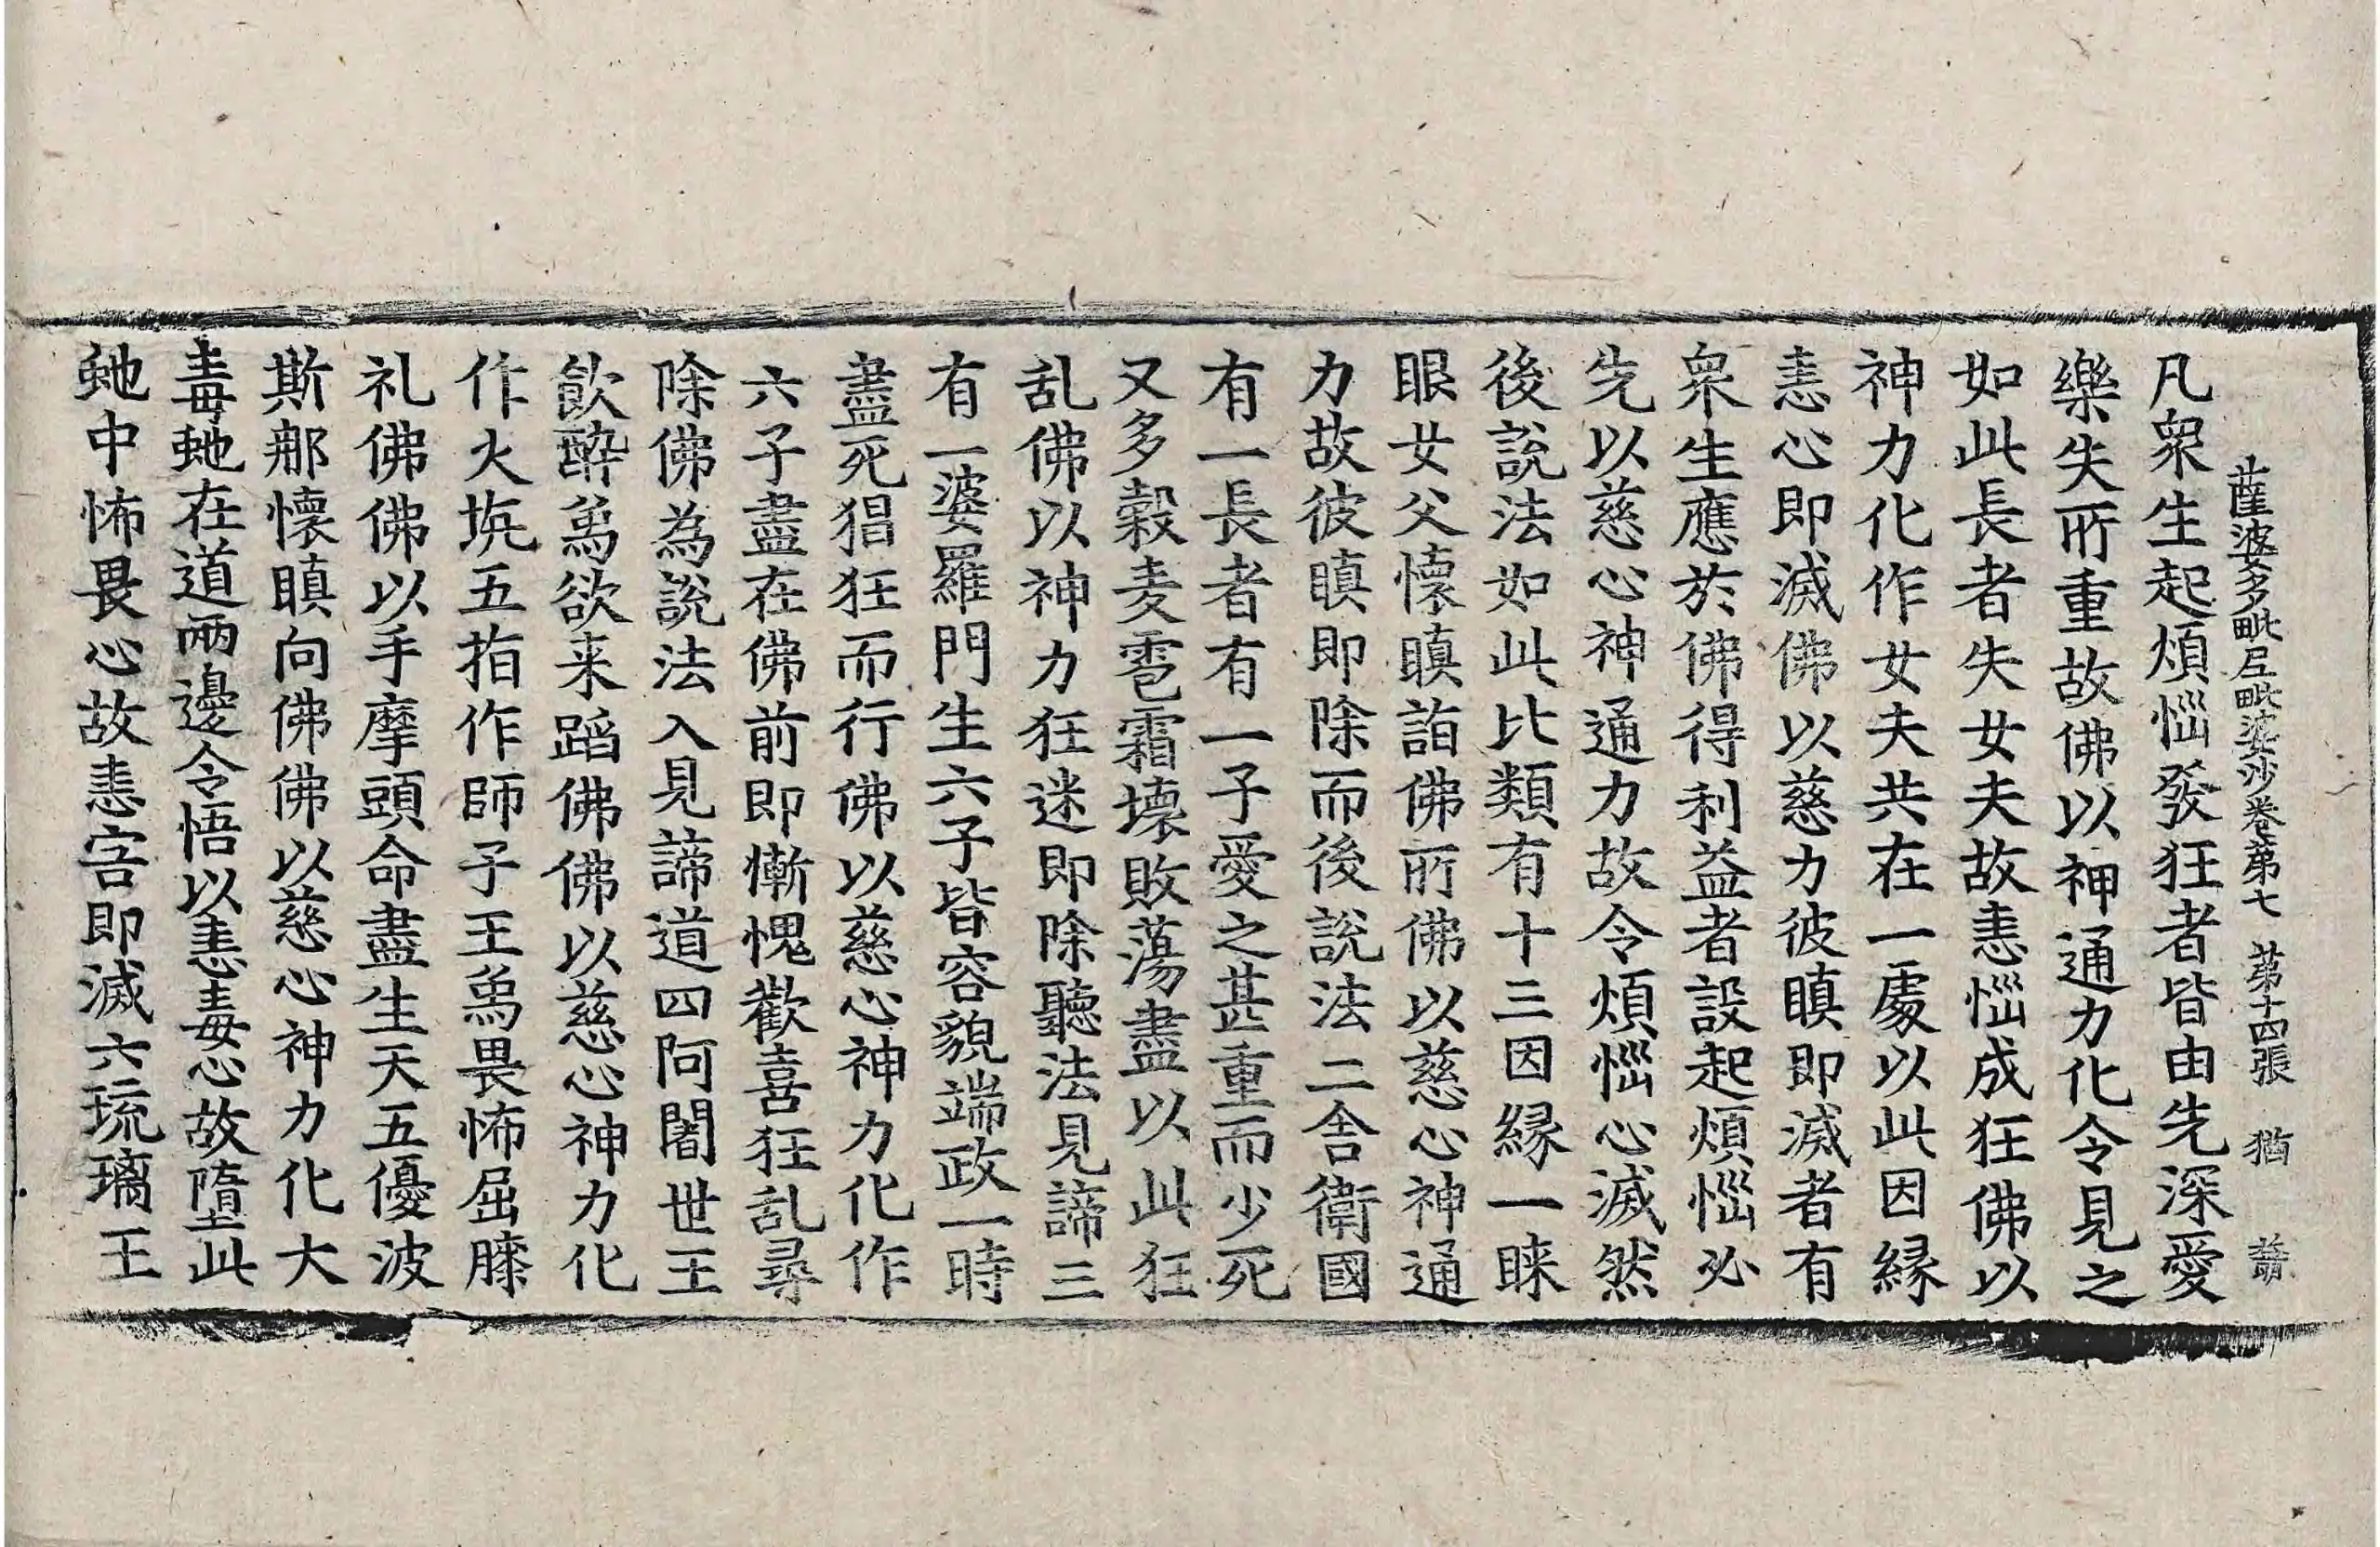 薩婆多毗尼毗婆沙卷苐七 苐十四張 猶
凡衆生起煩惱發狂者皆由先深愛
樂失所重故佛以神通力化令見之
如此長者失女夫故恚惱成狂佛以
神力化作女夫共在一處以此因緣
恚心即滅佛以慈力彼瞋即滅者有
衆生應於佛得利益者設起煩惱必
先以慈心神通力故令煩惱心滅然
後說法如此比類有十三因縁一睐
眼女父懷瞋詣佛所佛以慈心神通
力故彼瞋即除而後說法二舍衛國
有一長者有一子愛之甚重而少死
又多穀麦雹霜壞敗蕩盡以此狂
乱佛以神力狂迷即除聽法見諦三
有一婆羅門生六子皆容貌端政一時
盡死猖狂而行佛以慈心神力化作
六子盡在佛前即慚愧歡喜狂乱尋
除佛為說法入見諦道四阿闍世王
飲醉爲欲来蹈佛佛以慈心神力化
作火坑五指作師子王爲畏怖屈膝
礼佛佛以手摩頭命盡生天五優波
斯那懷瞋向佛佛以慈心神力化大
毒虵在道兩邊令悟以恚毒心故墮此
虵中怖畏心故恚害即滅六琉璃王